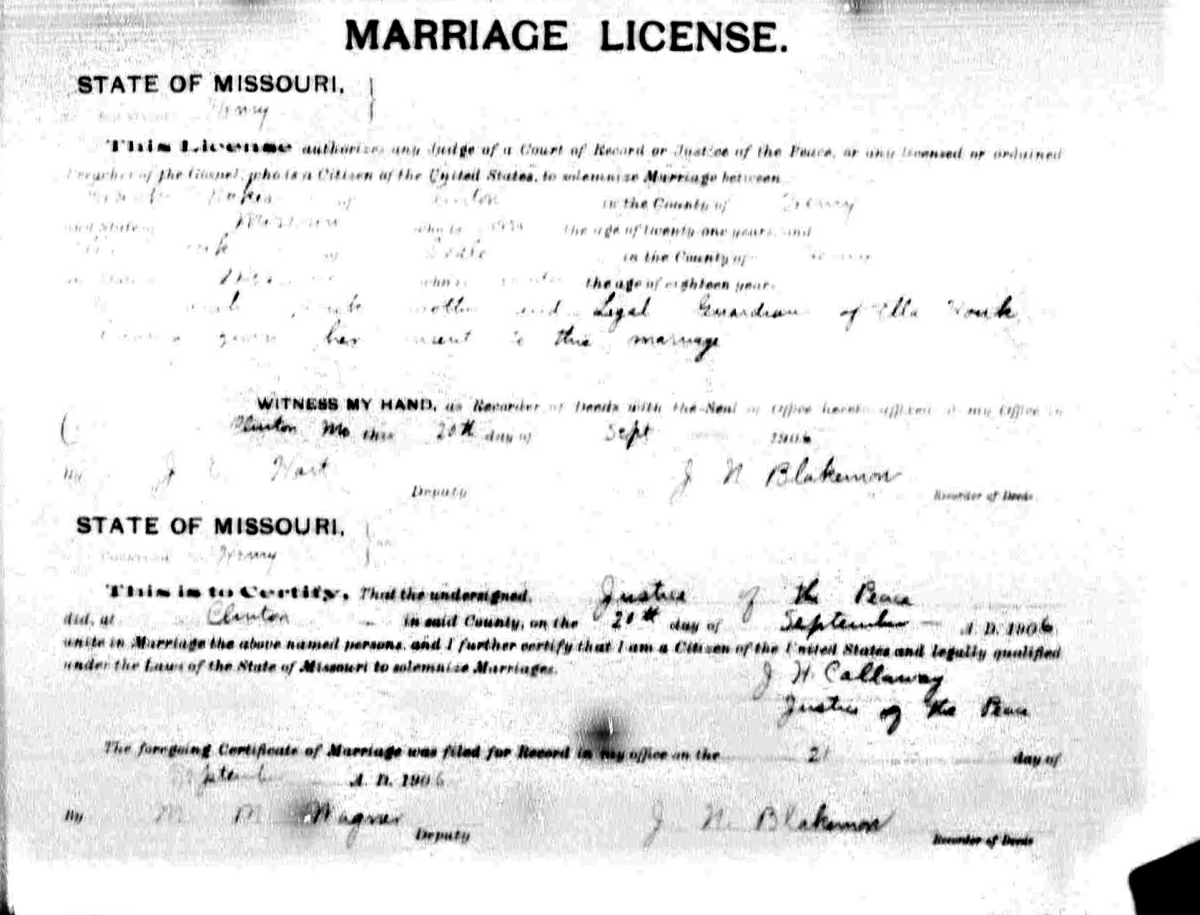 MARRIAGE LICENSE.
STATE OF MISSOURI,
Henry
This License authorizes any Judge of a Court of Record or Justice of the Peace, or any licensed or ordained
Preacher of the Gospel, who is a Citizen of the United States, to solemnize Marriage between
of Clinton in the County of Henry
and State of Missouri who is the age of twenty-one years, and
of in the County of
who is the age of eighteen years
mother and Legal Guardian of Ella
given her consent to this marriage
WITNESS MY HAND, as Recorder of Deeds with the Seal of Office hereto affixed at my Office in
Clinton Mo this 20th day of Sept 1906
By J E Hart Deputy J N Blakemon Recorder of Deeds
STATE OF MISSOURI,
Henry
This is to Certify, That the undersigned, Justice of the Peace
did, at Clinton in said County, on the 20th day of September A. D. 1906
unite in Marriage the above named persons, and I further certify that I am a Citizen of the United States and legally qualified
under the Laws of the State of Missouri to solemnize Marriages.
J H Callaway
Justice of the Peace
The foregoing Certificate of Marriage was filed for Record in my office on the 21 day of
September A. D. 1906
By M M Wagner Deputy J N Blakemon Recorder of Deeds